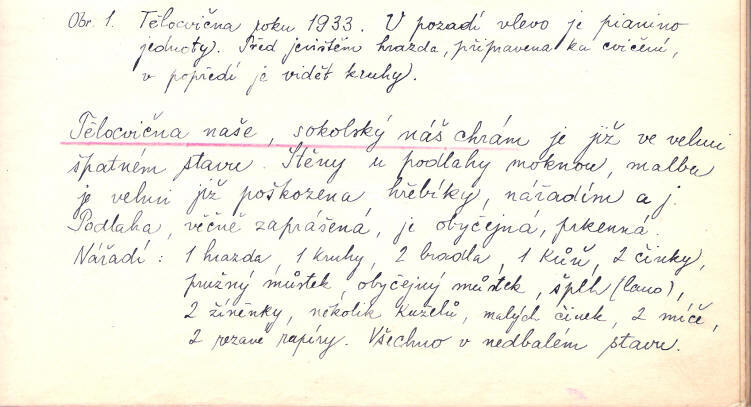 Obr. 1. Tělocvična roku 1933. V pozadí vlevo je pianino
jednoty. Před jevištěm hrazda, připravena ku cvičení,
v popředí je vidět kruhy.
Tělocvična naše, sokolský náš chrám je již ve velmi
špatném stavu. Stěny u podlahy moknou, malba
je velmi již poškozena hřebíky, nářadím a j.
Podlaha, věčně zaprášená, je obyčejná, prkenná.
Nářadí : 1 hrazda, 1 kruhy, 2 bradla, 1 kůň, 2 činky,
pružný můstek, obyčejný můstek, šplh (lano),
2 žíněnky, několik kuželů, malých činek, 2 míče,
2 rezavé rapíry. Všechno v nedbalém stavu.